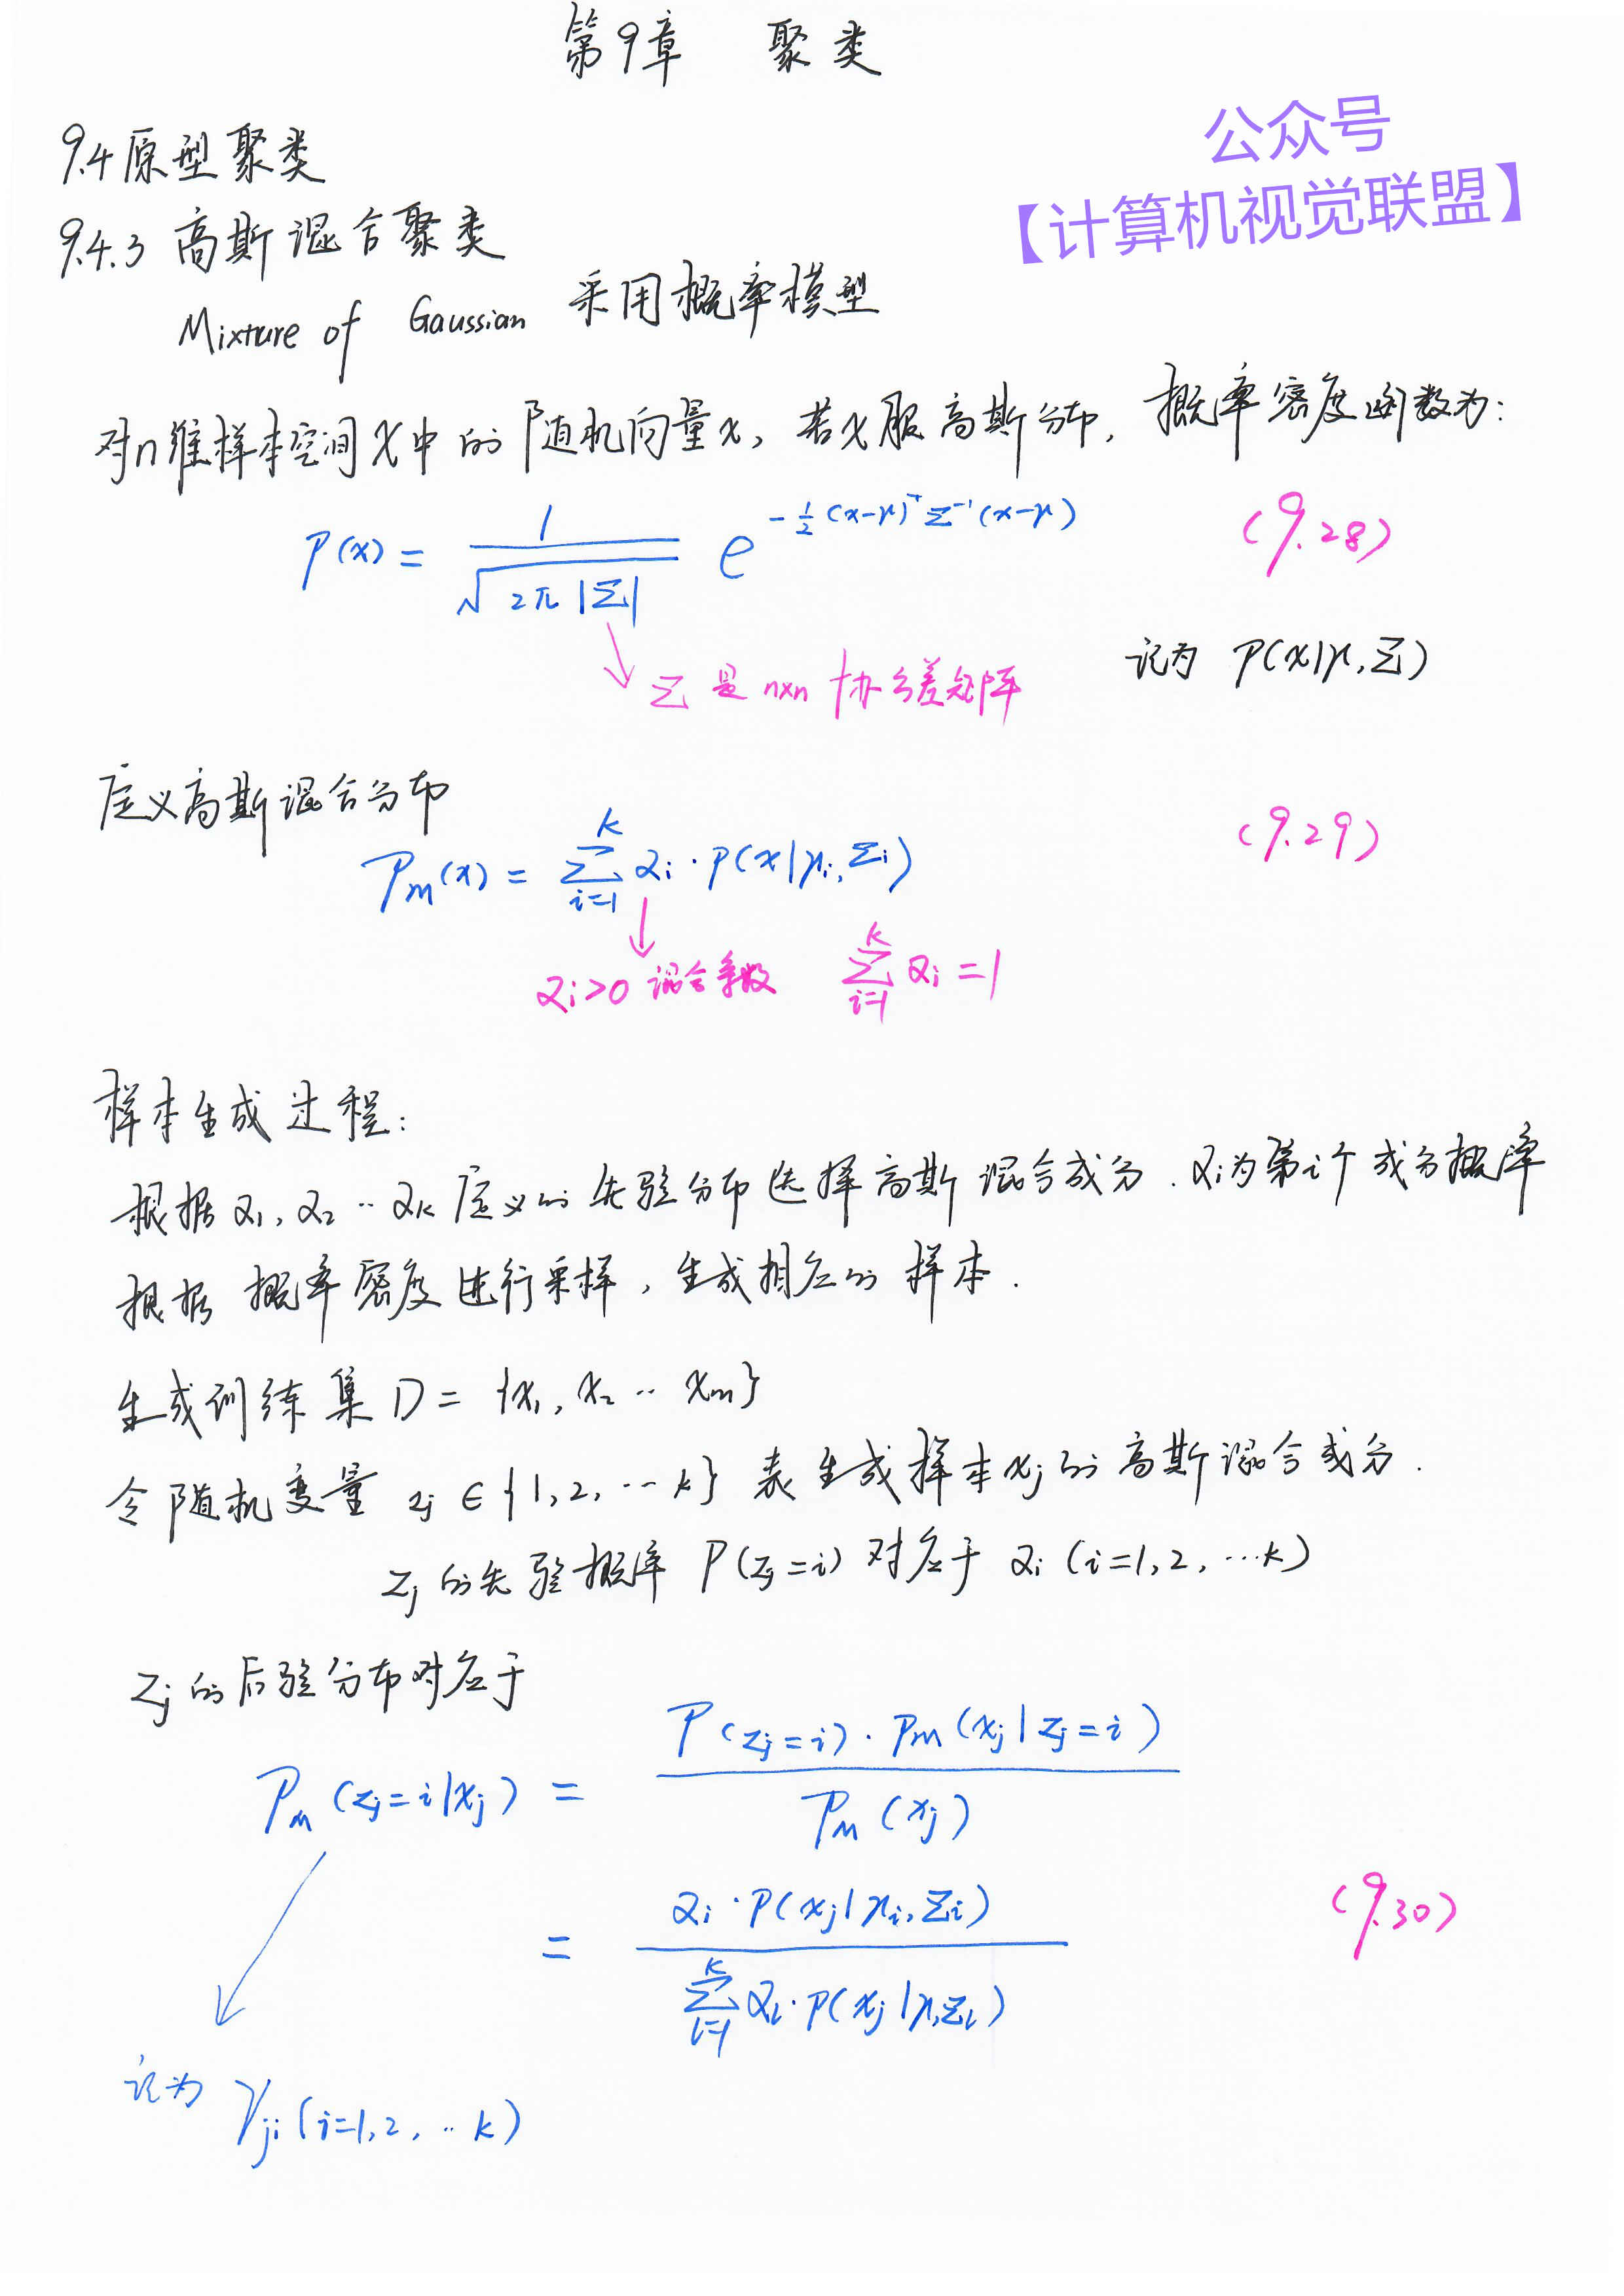 第9章 聚类
公众号
【计算机视觉联盟】
9.4 原型聚类
9.4.3 高斯混合聚类
Mixture of Gaussian 采用概率模型
对n维样本空间X中的随机向量x, 若x服高斯分布, 概率密度函数为:
P(x) = 1 / √(2π|Σ|) e^{-½(x-μ)^T Σ^{-1}(x-μ)} (9.28)
Σ是n×n协方差矩阵 记为 P(x|μ,Σ)
定义高斯混合分布
P_M(x) = Σ_{i=1}^{k} α_i · P(x|μ_i,Σ_i) (9.29)
α_i>0 混合系数 Σ_{i=1}^{k} α_i = 1
样本生成过程:
根据α_1, α_2 ·· α_k 定义的先验分布选择高斯混合成分. α_i为第i个成分概率
根据 概率密度进行采样, 生成相应的样本.
生成训练集 D = {x_1, x_2 ·· x_m}
令随机变量 z_j ∈ {1, 2, ··· k} 表生成样本x_j的高斯混合成分.
z_j的先验概率 P(z_j=i) 对应于 α_i (i=1,2, ···k)
z_j的后验分布对应于
P_M(z_j=i|x_j) = P(z_j=i) · P_M(x_j|z_j=i) / P_M(x_j)
= α_i · P(x_j|μ_i,Σ_i) / Σ_{l=1}^{k} α_l · P(x_j|μ,Σ_l) (9.30)
记为 γ_{ji} (i=1,2, ·· k)